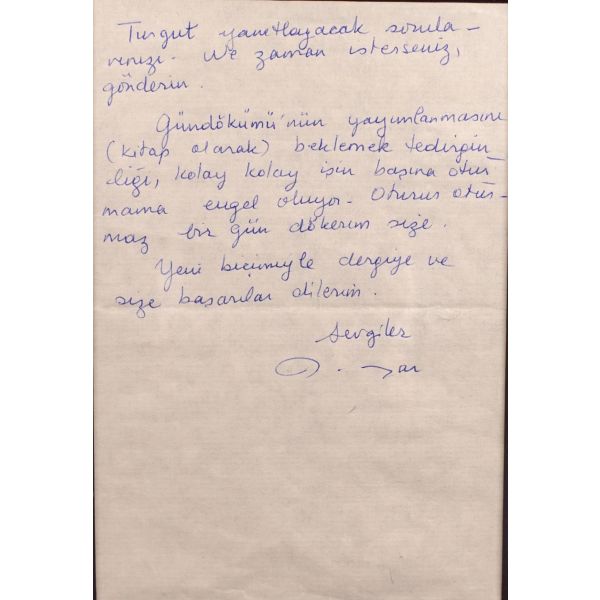 Turgut yanıtlayacak sorula-
rınızı. Ne zaman isterseniz,
gönderin.
Gündökümü'nün yayımlanmasını
(kitap olarak) beklemek tedirgin-
liği, kolay kolay işin başına otur-
mama engel oluyor. Oturur otur-
maz bir gün dökerim size.
Yeni biçimiyle dergiye ve
size başarılar dilerim.
Sevgiler